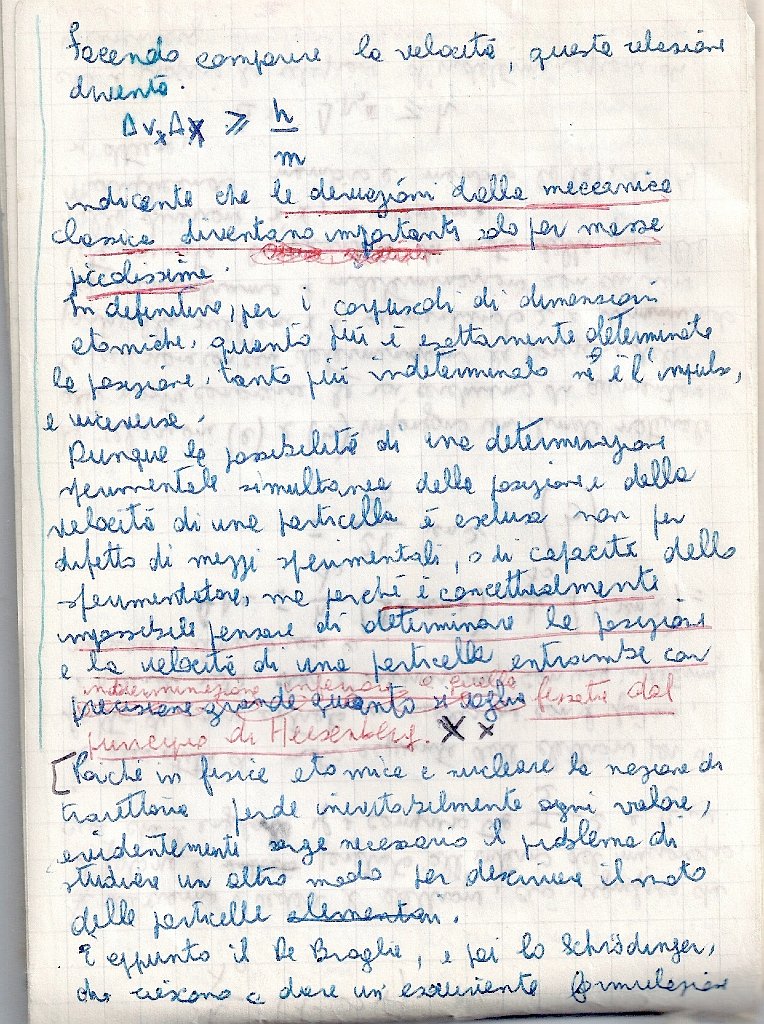 Facendo comparire la velocità, questa relazione
diventa.
Δvₓ Δx ⩾ h
m
indicante che le deviazioni dalla meccanica
classica diventano importanti solo per masse
piccolissime.
In definitiva, per i corpuscoli di dimensioni
atomiche, quanto più è esattamente determinata
la posizione, tanto più indeterminato ne è l'impulso,
e viceversa.
Dunque la possibilità di una determinazione
sperimentale simultanea della posizione e della
velocità di una particella è esclusa non per
difetto di mezzi sperimentali, o di capacità dello
sperimentatore, ma perché è concettualmente
impossibile pensare di determinare la posizione
e la velocità di una particella entrambe con
indeterminazione inferiore a quella
precisione grande quanto si voglia fissata dal
principio di Heisenberg. X x
[Poiché in fisica atomica e nucleare la nozione di
traiettoria perde inevitabilmente ogni valore,
evidentemente sorge necessario il problema di
studiare un altro modo per descrivere il moto
delle particelle elementari.
È appunto il De Broglie, e poi lo Schrödinger,
che riescono a dare un'esauriente formulazione